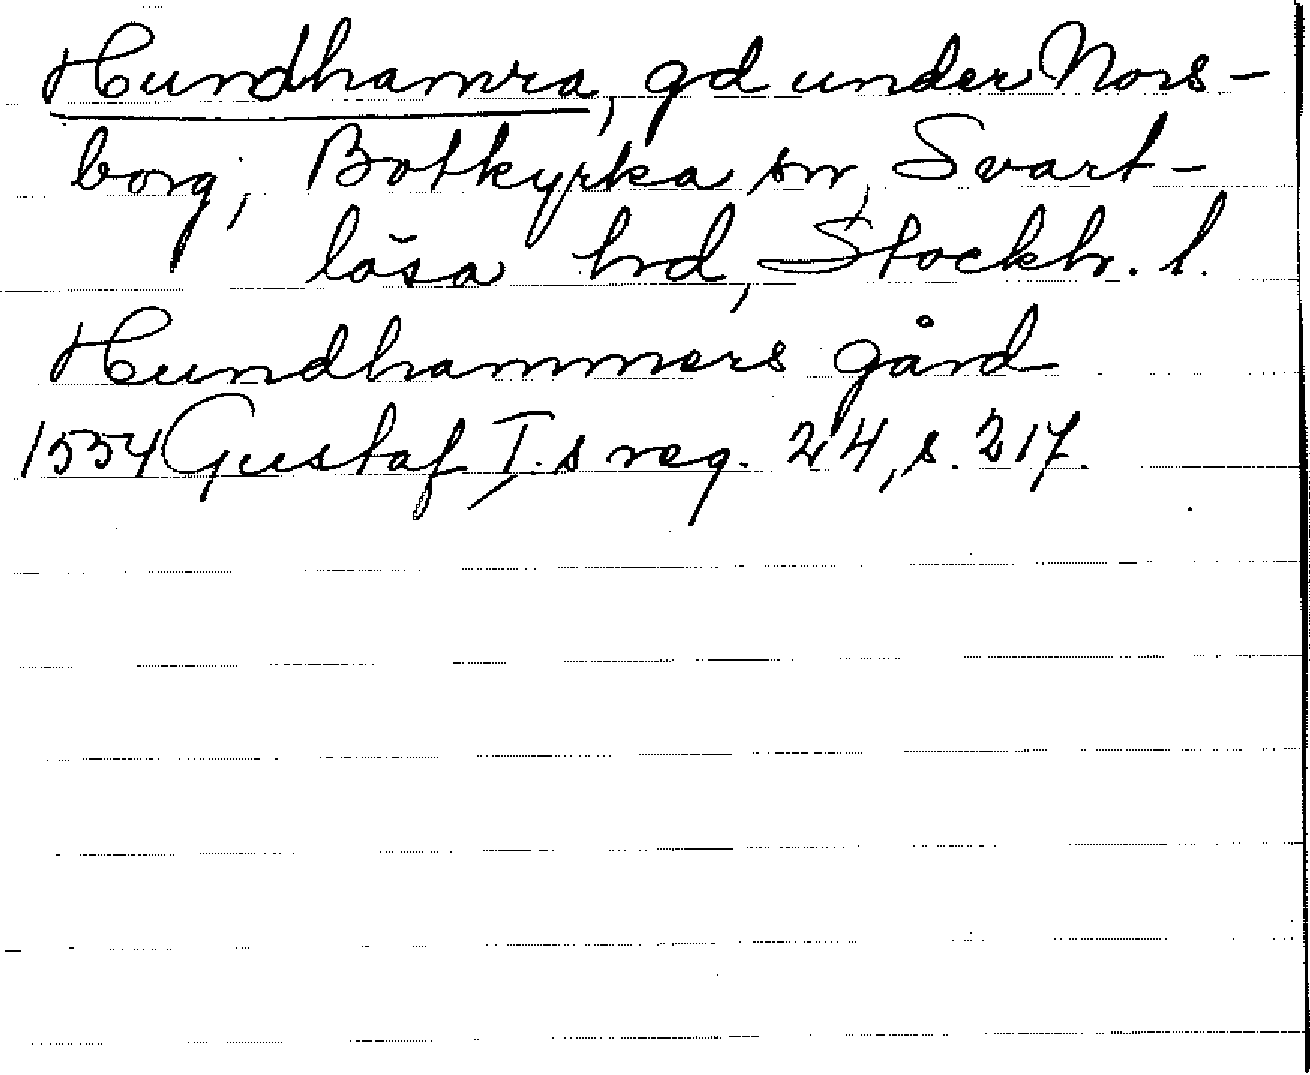 Hundhamra, gd under Nors-
borg, Botkyrka sn, Svart-
lösa hrd, Stockh. l.
Hundhammers gård
1554 Gustaf I.s reg. 24, s. 317.